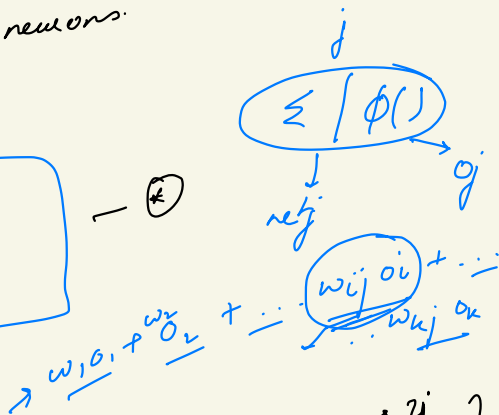 neurons.
j
Σ | φ()
— ⊛
oj
netj
→ w1o1 + w2o2 + ... wij oi + ...
... wkj ok